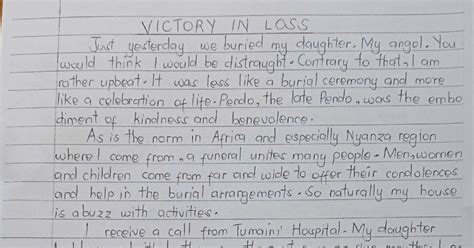 VICTORY IN LOSS
Just yesterday we buried my daughter. My angel. You
would think I would be distraught. Contrary to that, I am
rather upbeat. It was less like a burial ceremony and more
like a celebration of life. Pendo, the late Pendo, was the embo
diment of kindness and benevolence.
As is the norm in Africa and especially Nyanza region
where I come from, a funeral unites many people. Men, women
and children come from far and wide to offer their condolences
and help in the burial arrangements. So naturally my house
is abuzz with activities.
I receive a call from Tumaini Hospital. My daughter